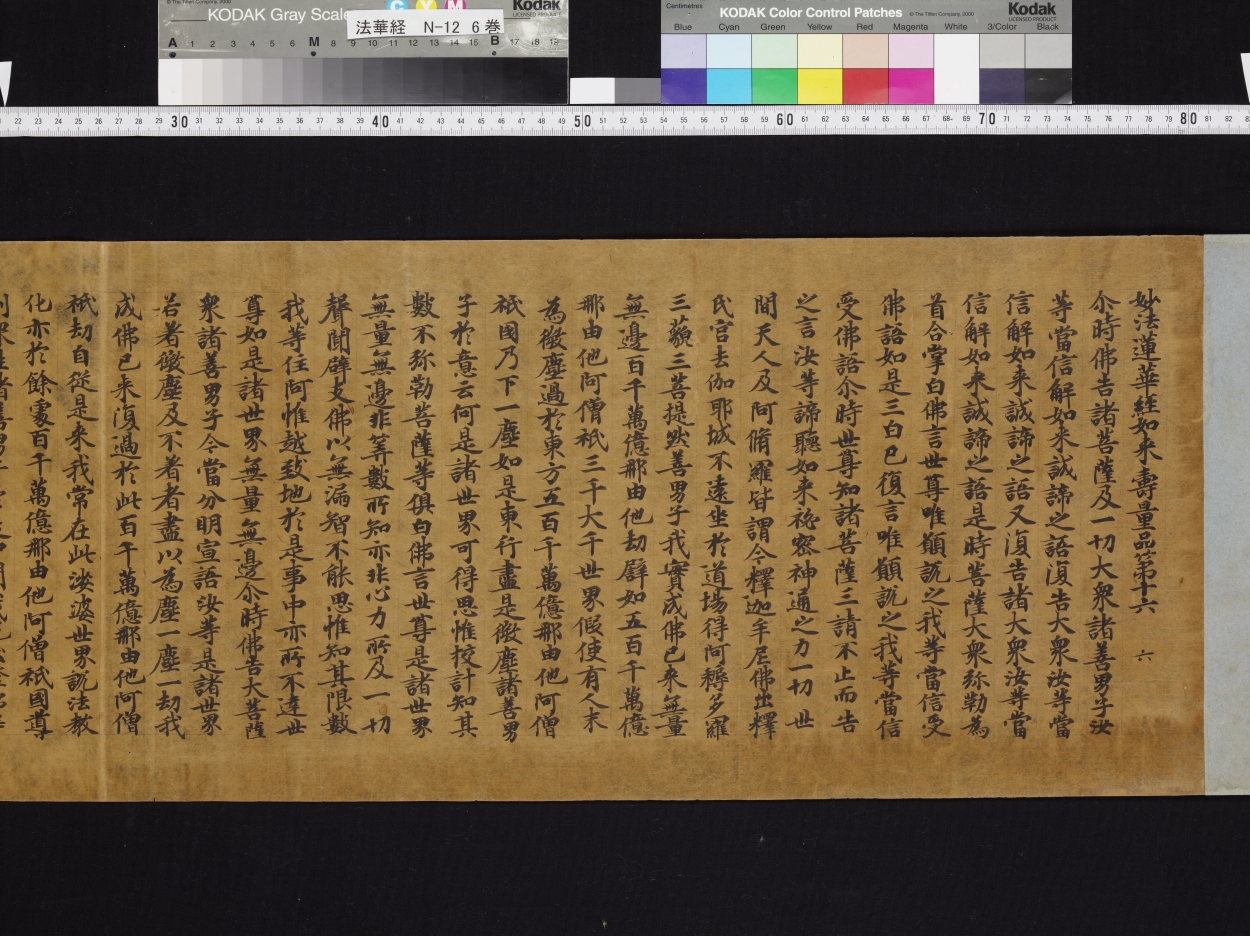 KODAK Gray Scale
Kodak
LICENSED PRODUCT
© The Tiffen Company, 2000
C Y M
法華経 N-12 6巻
A 1 2 3 4 5 6 M 8 9 10 11 12 13 14 15 B 17 18 19
Centimetres
KODAK Color Control Patches
© The Tiffen Company, 2000
Kodak
LICENSED PRODUCT
Blue Cyan Green Yellow Red Magenta White 3/Color Black
22 23 24 25 26 27 28 29 30 31 32 33 34 35 36 37 38 39 40 41 42 43 44 45 46 47 48 49 50 51 52 53 54 55 56 57 58 59 60 61 62 63 64 65 66 67 68 69 70 71 72 73 74 75 76 77 78 79 80 81 82
妙法蓮華經如來壽量品第十六 六
尒時佛告諸菩薩及一切大衆諸善男子汝
等當信解如来誠諦之語復告大衆汝等當
信解如来誠諦之語又復告諸大衆汝等當
信解如来誠諦之語是時菩薩大衆弥勒為
首合掌白佛言世尊唯願說之我等當信受
佛語如是三白已復言唯願說之我等當信
受佛語尒時世尊知諸菩薩三請不止而告
之言汝等諦聽如来祕密神通之力一切世
間天人及阿脩羅皆謂今釋迦牟尼佛出釋
氏宮去伽耶城不遠坐於道場得阿耨多羅
三藐三菩提然善男子我實成佛已来無量
無邊百千萬億那由他劫辟如五百千萬億
那由他阿僧祇三千大千世界假使有人末
為微塵過於東方五百千萬億那由他阿僧
祇國乃下一塵如是東行盡是微塵諸善男
子於意云何是諸世界可得思惟挍計知其
數不弥勒菩薩等俱白佛言世尊是諸世界
無量無邊非筭數所知亦非心力所及一切
聲聞辟支佛以無漏智不能思惟知其限數
我等住阿惟越致地於是事中亦所不達世
尊如是諸世界無量無邊尒時佛告大菩薩
衆諸善男子今當分明宣語汝等是諸世界
若著微塵及不著者盡以為塵一塵一劫我
成佛已来復過於此百千萬億那由他阿僧
祇劫自從是来我常在此娑婆世界說法教
化亦於餘處百千萬億那由他阿僧祇國導